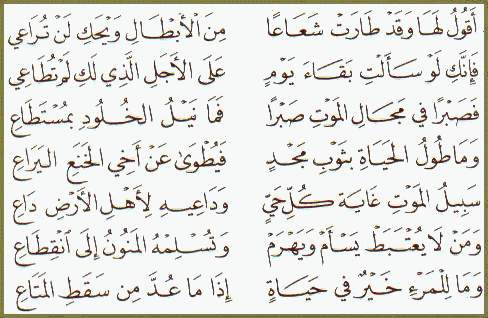 أَقُولُ لَهَا وَقَدْ طَارَتْ شَعَاعًا مِنَ الْأَبْطَالِ وَيْحَكِ لَنْ تُرَاعِي
فَإِنَّكِ لَوْ سَأَلْتِ بَقَاءَ يَوْمٍ عَلَى الْأَجَلِ الَّذِي لَكِ لَمْ تُطَاعِي
فَصَبْرًا فِي مَجَالِ الْمَوْتِ صَبْرًا فَمَا نَيْلُ الْخُلُودِ بِمُسْتَطَاعِ
وَمَا طُولُ الْحَيَاةِ بِثَوْبِ مَجْدٍ فَيُطْوَىٰ عَنْ أَخِي الْخَنَعِ الْيَرَاعِ
سَبِيلُ الْمَوْتِ غَايَةُ كُلِّ حَيٍّ وَدَاعِيهِ لِأَهْلِ الْأَرْضِ دَاعِ
وَمَنْ لَا يُعْتَبَطْ يَسْأَمْ وَيَهْرَمْ وَتُسْلِمْهُ الْمَنُونُ إِلَى انْقِطَاعِ
وَمَا لِلْمَرْءِ خَيْرٌ فِي حَيَاةٍ إِذَا مَا عُدَّ مِنْ سَقَطِ الْمَتَاعِ